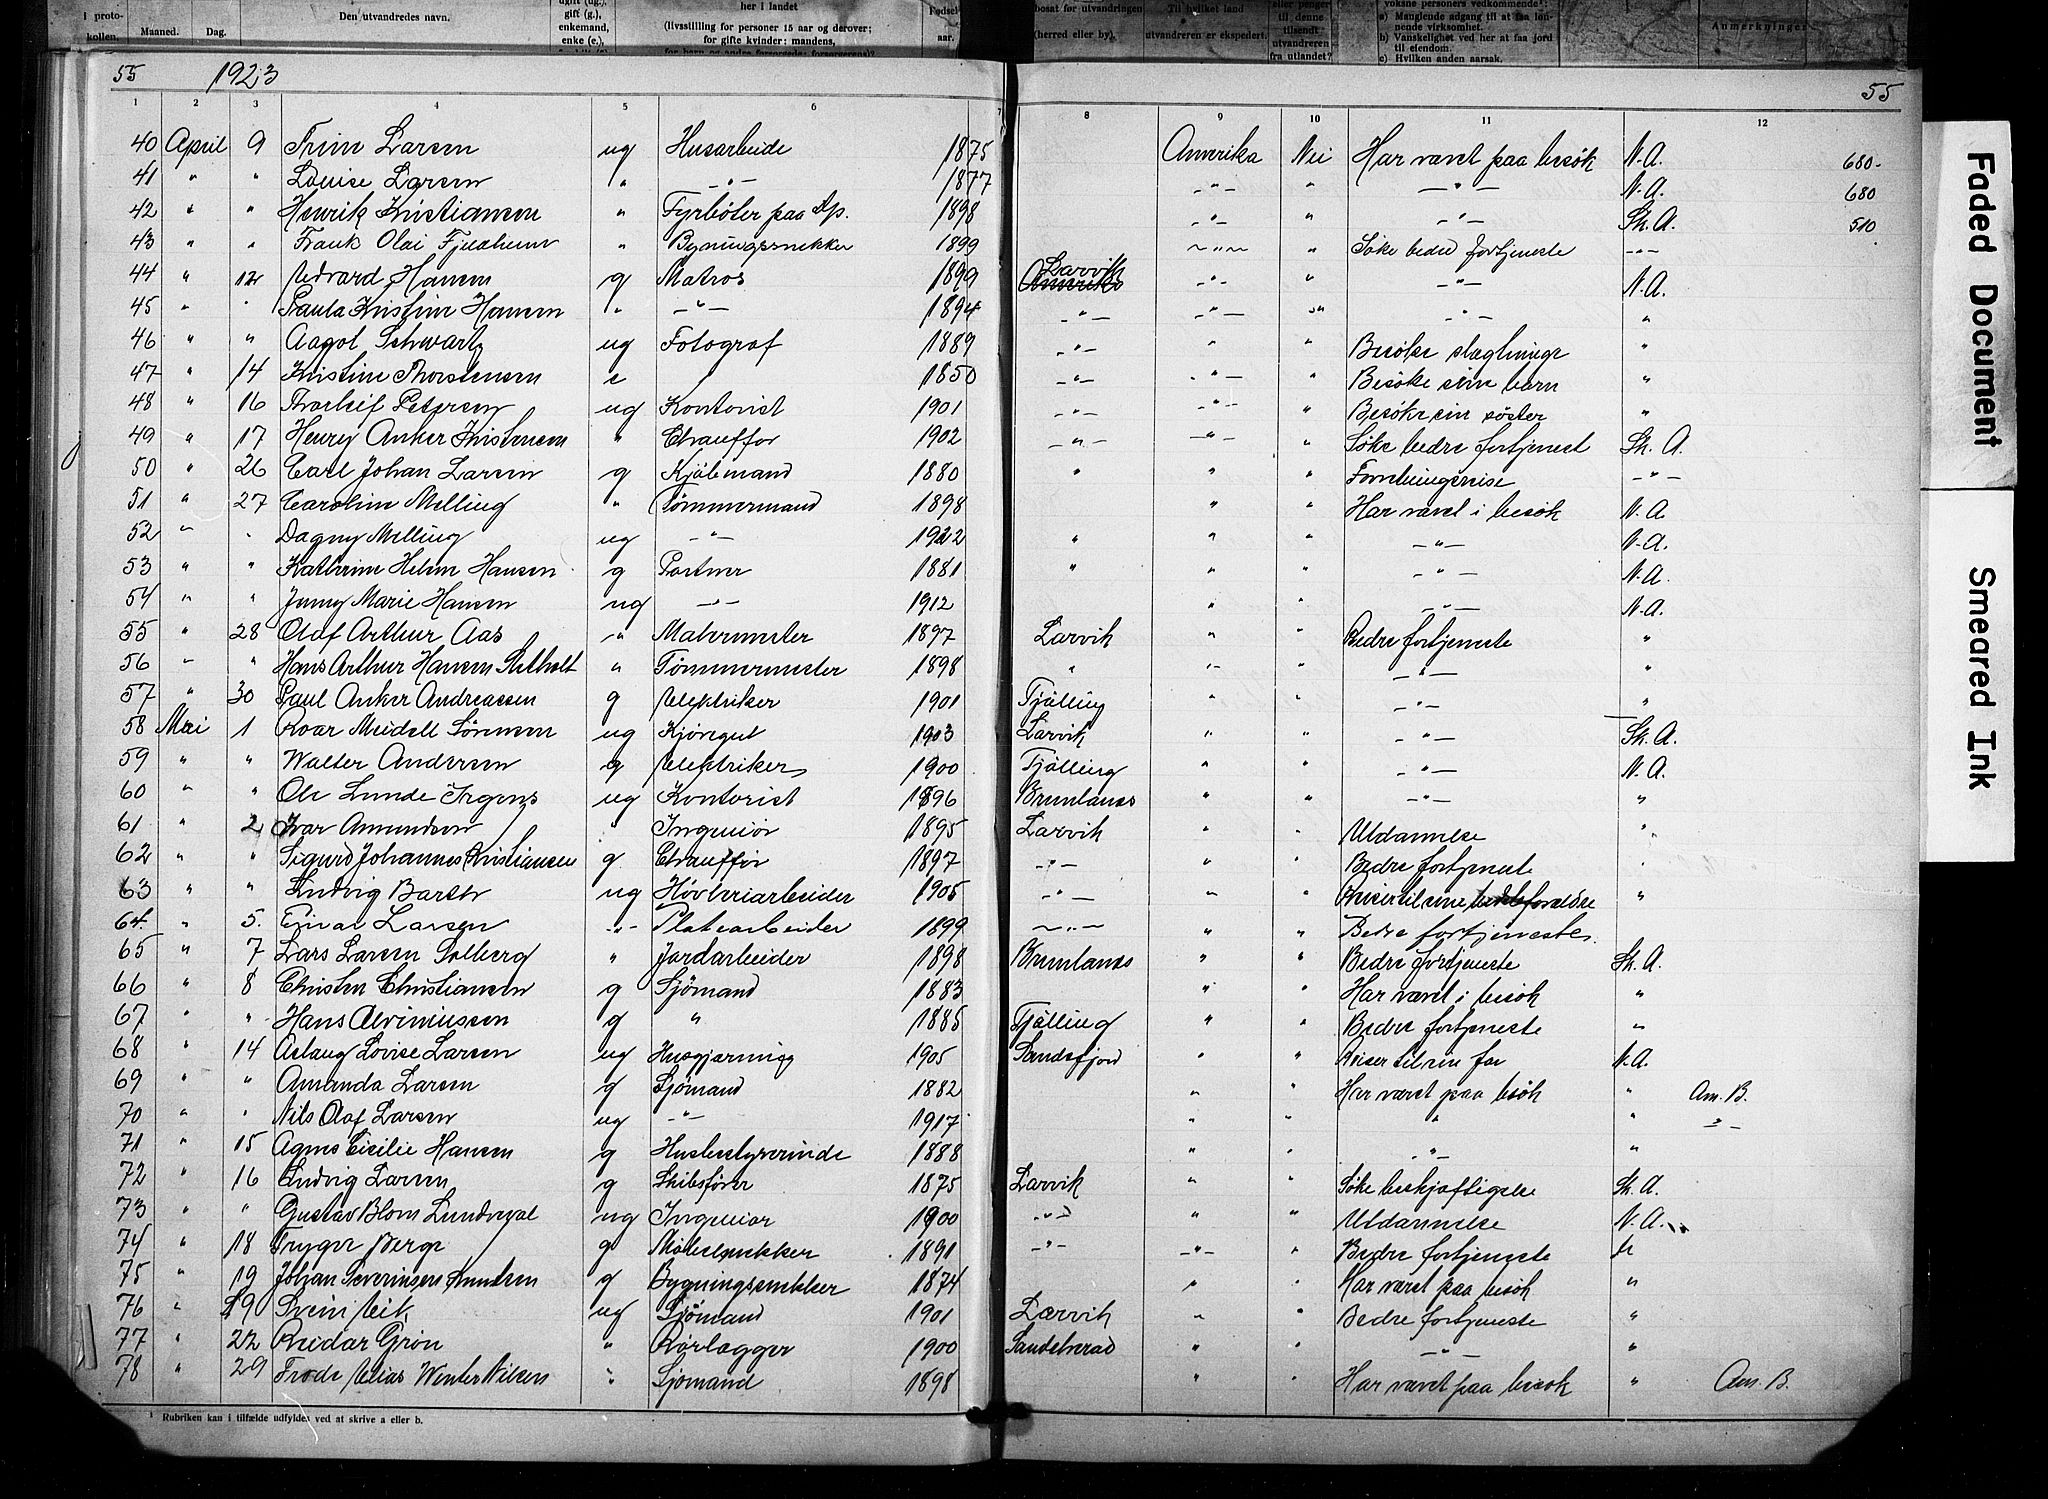 i proto- kollen. Maaned. Dag. Den utvandredes navn. gift (g.), enkemand, enke (e.), her i landet (livsstilling for personer 15 aar og derover; for gifte kvinder: mandens, Fødsels- aar. bosat før utvandringen (herred eller by). Til hvilket land utvandreren er ekspedert. eller penger til denne tilsendt utvandreren fra utlandet? voksne personers vedkommende: a) Manglende adgang til at faa løn- nende virksomhet. b) Vanskelighet ved her at faa jord til eiendom. c) Hvilken anden aarsak. Anmerkninger.
55 1923 55
1 2 3 4 5 6 7 8 9 10 11 12
40 April 9 Trine Larsen ug Husarbeide 1875 Amerika Nei Har været paa besøk N.A. 680-
41 " " Louise Larsen " -"- 1877 -"- " -"- N.A. 680
42 " " Henrik Kristiansen " Fyrbøter paa Dp. 1898 -"- " -"- Sk.A. 510
43 " " Frank Olai Fjeldheim " Bygningssnekker 1899 -"- " Søke bedre fortjeneste -"-
44 " 12 Edvard Hansen g Matros 1899 Larvik -"- " -"- N.A.
45 " " Paula Kristine Hansen " -"- 1894 -"- -"- " -"- "
46 " " Aagot Schwartz ug Fotograf 1889 -"- " " Besøke slegtninge "
47 " 14 Kristine Thorstensen e 1850 -"- -"- " Besøke sine barn "
48 " 16 Thorleif Petersen ug Kontorist 1901 -"- -"- " Besøke sin søster "
49 " 17 Henry Anker Kristensen " Chauffør 1902 -"- -"- " Søke bedre fortjenest Sk.A.
50 " 26 Carl Johan Larsen g Kjølemand 1880 " " " Forretningsreise -"-
51 " 27 Caroline Melling " Tømmermand 1898 " " Har været i besøk N.A
52 " " Dagny Melling ug -"- 1922 " " " -"- N.A.
53 " " Kathrine Helene Hansen g Portner 1881 " " " -"- N.A.
54 " " Jenny Marie Hansen ug -"- 1912 " " -"- N.A.
55 " 28 Olaf Arthur Aas " Malermester 1897 Larvik " " Bedre fortjeneste "
56 " " Hans Arthur Hansen " Tømmermester 1898 " " " -"- "
57 " 30 Paul Anker Andreassen g Elektriker 1901 Tjølling " " -"- "
58 Mai 1 Roar Meidell Sørensen ug Kjøregut 1903 Larvik " " -"- Sk.A.
59 " " Walter Andersen g Elektriker 1900 Tjølling " " -"- N.A.
60 " " Ole Lunde Irgens ug Kontorist 1896 Brunlanes " " -"- "
61 " 2 Ivar Amundsen " Ingeniør 1895 Larvik " " Utdannelse "
62 " " Sigurd Johannes Kristiansen g Chauffør 1897 -"- " " Bedre fortjeneste "
63 " " Ludvig Barth ug Høvleriarbeider 1905 -"- " " Reiser til sine forældre "
64 " 5. Einar Larsen -"- Platearbeider 1899 -"- " " Bedre fortjeneste.
65 " 7 Lars Larsen Solberg " Jordarbeider 1898 Brunlanes " " Bedre fortjeneste Sk.A.
66 " 8 Christen Christiansen g Sjømand 1883 " " Har været i besøk "
67 " " Hans Alvinussen g " 1885 Tjølling " " Bedre fortjeneste "
68 " 14 Aslaug Lovise Larsen ug Husgjerning 1905 Sandefjord " " Reiser til sin far N.A.
69 " " Amanda Larsen g Sjømand 1882 " " Har været paa besøk " Am. B.
70 " " Nils Olaf Larsen ug -"- 1917 " " " " -"-
71 " 15 Agnes Cicilie Hansen g Husbestyrerinde 1888 " " -"- "
72 " 16 Ludvig Larsen g Skibsfører 1875 Larvik " " Søke beskjæftigelse Sk.A.
73 " " Gustav Blom Lundveval ug Ingeniør 1900 -"- " " Utdannelse N.A.
74 " 18 Trygve Berge g Møbelsnekker 1891 -"- -"- " Bedre fortjeneste "
75 " 19 Johan Severinsen Knudsen g Bygningssnekker 1874 " " Har været paa besøk "
76 " 19 Svein Eik ug Sjømand 1901 Larvik " " Bedre fortjeneste "
77 " 22 Reidar Grøn " Rørlægger 1900 Sandeherad " " -"- "
78 " 29 Frode Elias Winter Nilsen " Sjømand 1898 " " Har været paa besøk " Am. B.
¹ Rubriken kan i tilfælde utfyldes ved at skrive a eller b.
Faded Document
Smeared Ink